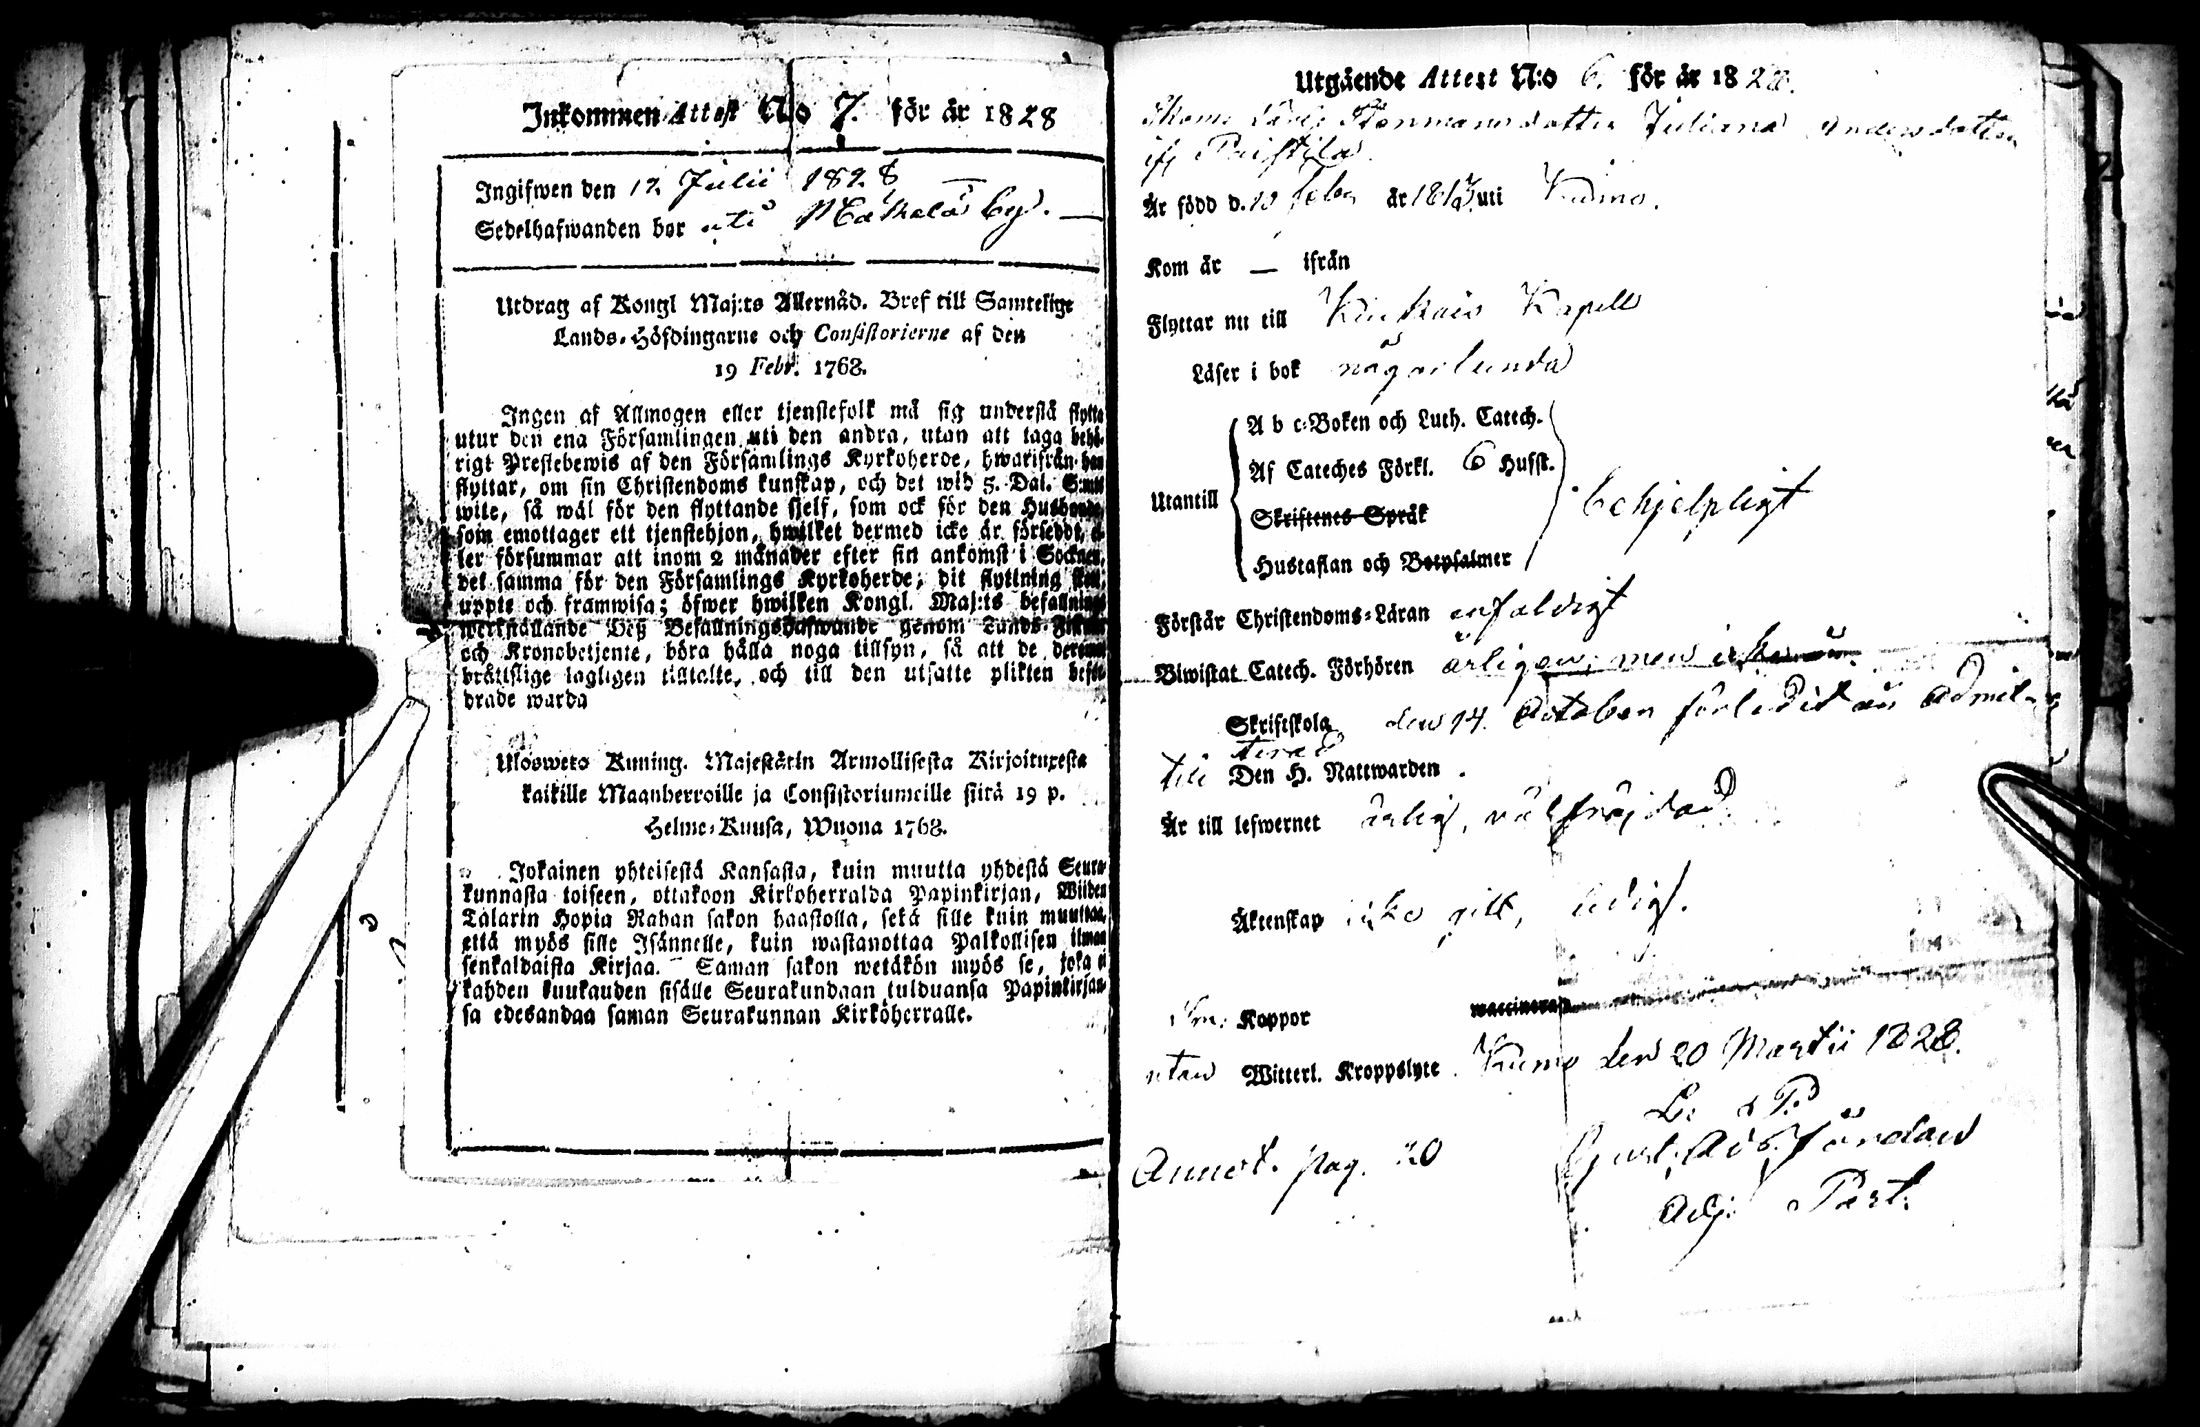 Inkommen Attest No 7. för år 1828
Ingifwen den 17. Julii 1828
Sedelhafwanden bor uti by.
Utdrag af Kongl Maj:ts Allernåd. Bref till Samtelige
Lands-Höfdingarne och Consistorierne af den
19 Febr. 1768.
Ingen af Allmogen eller tjenstefolk må sig understå flytta
utur den ena Församlingen uti den andra, utan att taga behö-
rigt Prestebewis af den Församlings Kyrkoherde, hwarifrån han
flyttar, om sin Christendoms kunskap, och det wid 5. Dal. S:mts
wite, så wäl för den flyttande sjelf, som ock för den Husbonde,
som emottager ett tjenstehjon, hwilket dermed icke är förseddt, el-
ler försummar att inom 2 månader efter sin ankomst i Socknen,
det samma för den Församlings Kyrkoherde, dit flyttning sker,
uppte och framwisa; öfwer hwilken Kongl. Maj:ts befallnings
werkställande Deß Befallningshafwande genom Lands-Fiskaler
och Kronobetjente, böra hålla noga tillsyn, så att de deremot
bråttslige lagligen tilltalte, och till den utsatte plikten befor-
drade warda
Uloswets Kuning. Majestätin Armollisesta Kirjoituxesta
kaikille Maanherroille ja Consistoriumeille siitä 19 p.
Helme-Kuusa, Wuona 1768.
Jokainen yhteisestä Kansasta, kuin muutta yhdestä Seura-
kunnasta toiseen, ottakoon Kirkoherralda Papinkirjan, Wiiden
Talarin Hopia Rahan sakon haastolla, sekä sille kuin muuttaa,
että myös sille Isännelle, kuin wastanottaa Palkollisen ilman
senkaldaista Kirjaa. Saman sakon wetäkön myös se, joka ei
kahden kuukauden sisälle Seurakundaan tulduansa Papinkirjan-
sa edesandaa saman Seurakunnan Kirköherralle.
Utgående Attest N:o 6. för år 1828.
Juliana Andersdotter
ifr
Är född d. 10 Febr år 181 uti Kumo.
Kom år — ifrån
Flyttar nu till Kapell
Läser i bok någorlunda
A b c-Boken och Luth. Catech.
Af Cateches Förkl. 6 Hufst.
Utantill behjelpligt
Skriftenes Språk
Hustaflan och Botpsalmer
Förstår Christendoms-Läran enfaldigt
Biwistat Catech. Förhören årligen, men icke
Skriftskola den 14. October förledit år admit-
terad
till Den H. Nattwarden.
Är till lefwernet ärlig, välfräjdad
Äktenskap icke gift, ledig.
Koppor waccinerad
utan Witterl. Kroppslyte Kumo den 20 Martii 1828.
Annot. pag. 20
Adj. Past.